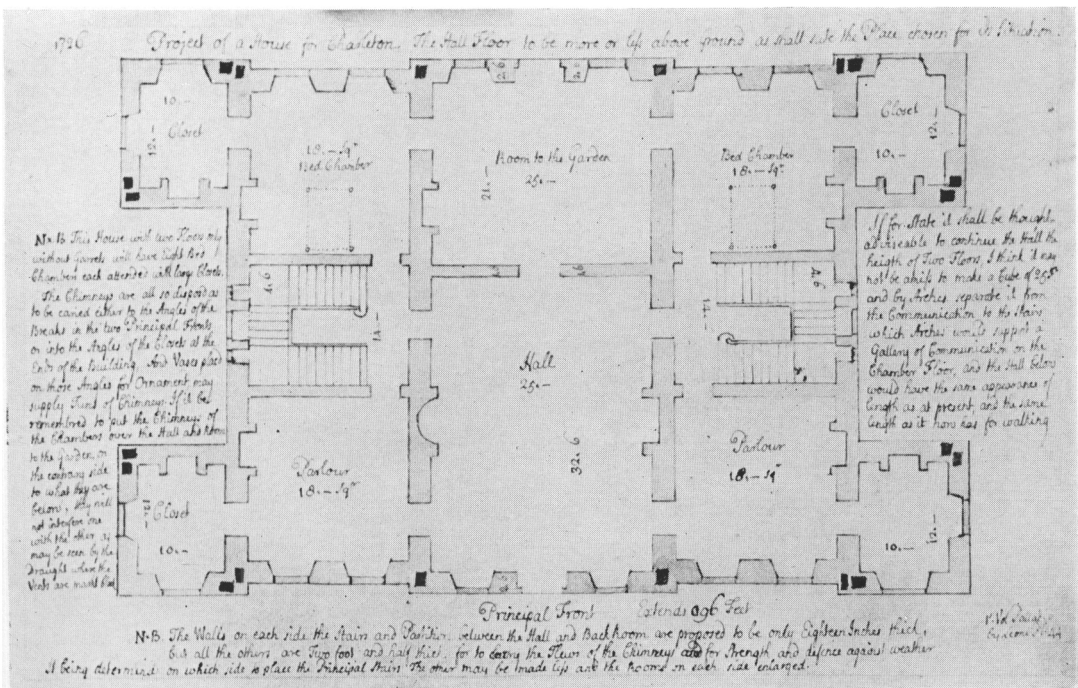 1726 Project of a House for Charleton. The Hall Floor to be more or less above ground as shall sute the Place chosen for its Situation.
10.—
12.—
Closet
18.—Sqr
Bed Chamber
Room to the Garden
25.—
21.—
2.6
2.6
Bed Chamber
18.—Sqr
Closet
12.—
10.—
Na. B. This House with two Floors only
without Garrets will have Eight Bed
Chambers each attended with large Closets.
The Chimneys are all so disposd as
to be caried either to the Angles of the
Breaks in the two Principal Fronts
or into the Angles of the Closets at the
Ends of the Building. And Vases placd
on those Angles for Ornament may
supply Tunls of Chimneys if it be
remembred to put the Chimneys of
the Chambers over the Hall and Room
to the Garden, on
the contrary side
to what they are
below, they will
not interfere one
with the other as
may be seen by the
Draught where the
Vents are markd black
4.6
14.—
1.6
1.6
Hall
25.—
32.6
4.6
14.—
If for State it shall be thought
adviseable to continue the Hall the
heigth of Two Floors, I think it may
not be amiss to make a Cube of 25.F
and by Arches separate it from
the Communication to the Stairs
which Arches would support a
Gallery of Communication on the
Chamber Floor, and the Hall below
would have the same appearance of
length as at present, and the same
length as it now has for walking
Parlour
18.—Sqr
Closet
12.—
10.—
Parlour
18.—Sqr
10.—
12.—
2.6
Principal Front Extends 96 Feet
N.B. The Walls on each side the Stairs and Partition between the Hall and Back Room are proposed to be only Eighteen Inches thick,
but all the others are Two foot and half thick, for to carry the Flews of the Chimneys and for Strength, and defence against weather
It being determined on which side to place the Principal Stairs The other may be made less and the Rooms on each side enlarged.